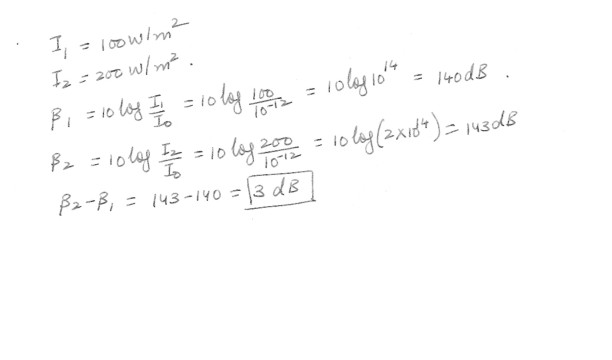 I₁ = 100 W/m²
I₂ = 200 W/m².
β₁ = 10 log I₁/I₀ = 10 log 100/10⁻¹² = 10 log 10¹⁴ = 140 dB.
β₂ = 10 log I₂/I₀ = 10 log 200/10⁻¹² = 10 log (2×10¹⁴) = 143 dB
β₂-β₁ = 143-140 = 3 dB